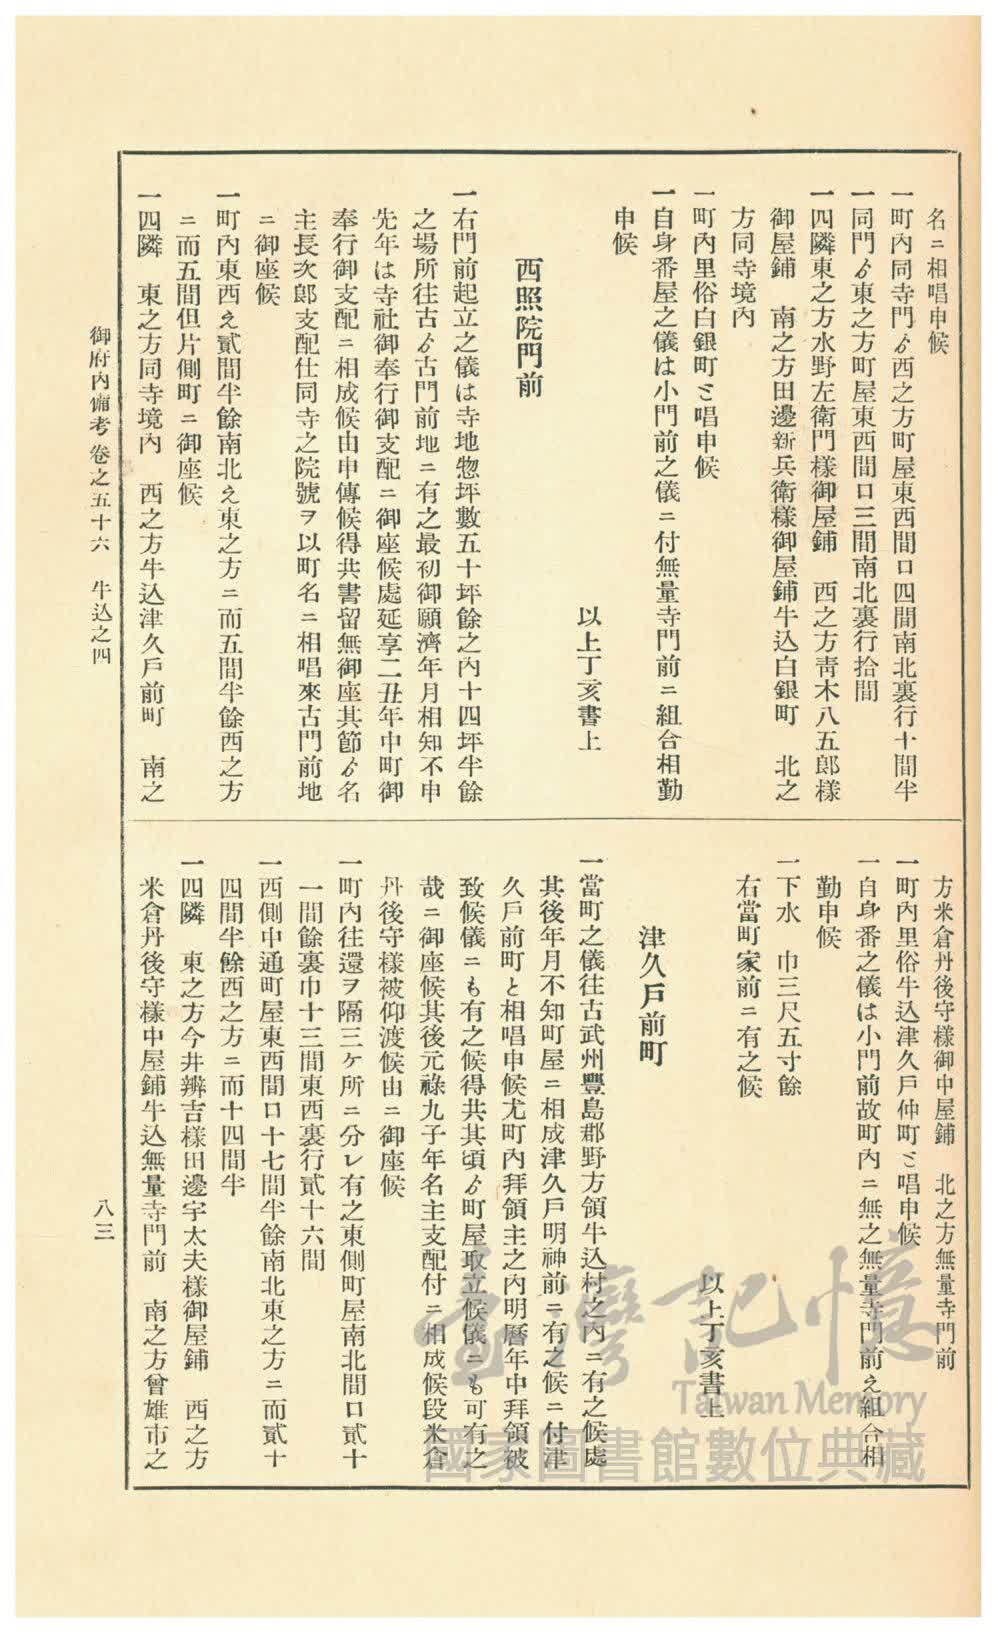 名ニ相唱申候
一町內同寺門ゟ西之方町屋東西間口四間南北裏行十間半
一同門ゟ東之方町屋東西間口三間南北裏行拾間
一四隣東之方水野左衛門樣御屋鋪　西之方靑木八五郎樣
御屋鋪　南之方田邊新兵衛樣御屋鋪牛込白銀町　北之
方同寺境內
一町內里俗白銀町と唱申候
一自身番屋之儀は小門前之儀ニ付無量寺門前ニ組合相勤
申候
以上丁亥書上
西照院門前
一右門前起立之儀は寺地惣坪數五十坪餘之內十四坪半餘
之場所往古ゟ古門前地ニ有之最初御願濟年月相知不申
先年は寺社御奉行御支配ニ御座候處延享二丑年中町御
奉行御支配ニ相成候由申傳候得共書留無御座其節ゟ名
主長次郞支配仕同寺之院號ヲ以町名ニ相唱來古門前地
ニ御座候
一町內東西え貳間半餘南北え東之方ニ而五間半餘西之方
ニ而五間但片側町ニ御座候
一四隣　東之方同寺境內　西之方牛込津久戶前町　南之
方米倉丹後守樣御中屋鋪　北之方無量寺門前
一町內里俗牛込津久戶仲町と唱申候
一自身番之儀は小門前故町內ニ無之無量寺門前え組合相
勤申候
一下水　巾三尺五寸餘
右當町家前ニ有之候
以上丁亥書上
津久戶前町
一當町之儀往古武州豐島郡野方領牛込村之內ニ有之候處
其後年月不知町屋ニ相成津久戶明神前ニ有之候ニ付津
久戶前町と相唱申候尤町內拜領主之內明曆年中拜領被
致候儀ニも有之候得共其頃ゟ町屋取立候儀ニも可有之
哉ニ御座候其後元祿九子年名主支配付ニ相成候段米倉
丹後守樣被仰渡候由ニ御座候
一町內往還ヲ隔三ケ所ニ分レ有之東側町屋南北間口貳十
一間餘裏巾十三間東西裏行貳十六間
一西側中通町屋東西間口十七間半餘南北東之方ニ而貳十
四間半餘西之方ニ而十四間半
一四隣　東之方今井辨吉樣田邊宇太夫樣御屋鋪　西之方
米倉丹後守樣中屋鋪牛込無量寺門前　南之方曾雄市之
御府內備考卷之五十六　牛込之四
八三
臺灣記憶
Taiwan Memory
國家圖書館數位典藏